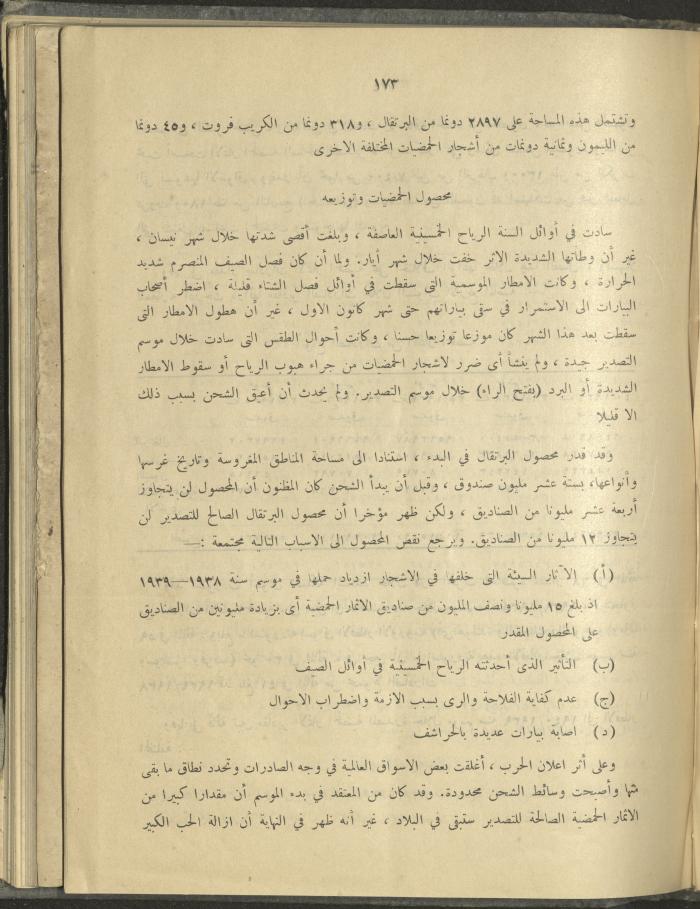 ١٧٣
وتشتمل هذه المساحة على ٢٨٩٧ دونما من البرتقال ، و٣١٨ دونما من الكريب فروت ، و٤٥ دونما
من الليمون وثمانية دونمات من أشجار الحمضيات المختلفة الاخرى
محصول الحمضيات وتوزيعه
سادت في أوائل السنة الرياح الخمسينية العاصفة ، وبلغت أقصى شدتها خلال شهر نيسان ،
غير أن وطأتها الشديدة الاثر خفت خلال شهر أيار. ولما أن كان فصل الصيف المنصرم شديد
الحرارة ، وكانت الامطار الموسمية التى سقطت في أوائل فصل الشتاء قليلة ، اضطر أصحاب
البيارات الى الاستمرار في سقى بياراتهم حتى شهر كانون الاول ، غير أن هطول الامطار التى
سقطت بعد هذا الشهر كان موزعا توزيعا حسنا ، وكانت أحوال الطقس التى سادت خلال موسم
التصدير جيدة ، ولم ينشأ أى ضرر لاشجار الحمضيات من جراء هبوب الرياح أو سقوط الامطار
الشديدة أو البرد (بفتح الراء) خلال موسم التصدير. ولم يحدث أن أعيق الشحن بسبب ذلك
الا قليلا
وقد قدر محصول البرتقال في البدء ، استنادا الى مساحة المناطق المغروسة وتاريخ غرسها
وأنواعها، بستة عشر مليون صندوق ، وقبل أن يبدأ الشحن كان المظنون أن المحصول لن يتجاوز
أربعة عشر مليونا من الصناديق ، ولكن ظهر مؤخرا أن محصول البرتقال الصالح للتصدير لن
يتجاوز ١٢ مليونا من الصناديق. ويرجع نقص المحصول الى الاسباب التالية مجتمعة :—
(أ) الآثار السيئة التى خلفها في الاشجار ازدياد حملها في موسم سنة ١٩٣٨—١٩٣٩
اذ بلغ ١٥ مليونا ونصف المليون من صناديق الاثمار الحمضية أى بزيادة مليونين من الصناديق
على المحصول المقدر
(ب) التأثير الذى أحدثته الرياح الخمسينية في أوائل الصيف
(ج) عدم كفاية الفلاحة والرى بسبب الازمة واضطراب الاحوال
(د) اصابة بيارات عديدة بالحراشف
وعلى أثر اعلان الحرب ، أغلقت بعض الاسواق العالمية في وجه الصادرات وتحدد نطاق ما بقى
منها وأصبحت وسائط الشحن محدودة. وقد كان من المعتقد في بدء الموسم أن مقدارا كبيرا من
الاثمار الحمضية الصالحة للتصدير ستبقى في البلاد ، غير أنه ظهر في النهاية أن ازالة الحب الكبير